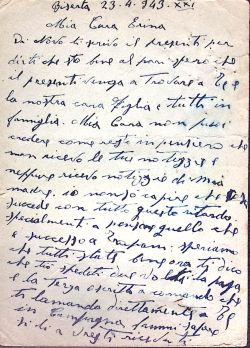 Biserta 23.4.943.XXI
Mia Cara Erina
Di Novo ti scrivo il presenti per
dirti che sto bene al pari spero che
il presenti venga a Trovare a Te e
la nostra cara figlia e tutti in
famiglia. Mia Cara non puoi
credere come resto in pensiero che
non ricevo le tue notizzie e
neppure ricevo notizzie di mia
madre. io non so capire che
succede con tutto questo ritardo.
specialmenti a pensare quello che
e successo a Trapani: speriamo
che tutti state bene ora ti dico
che ti o spedito due la paga
e la terza o scritto a comando che
ti la mando direttamenti a Te
in Campagna fammi sapere
si li a